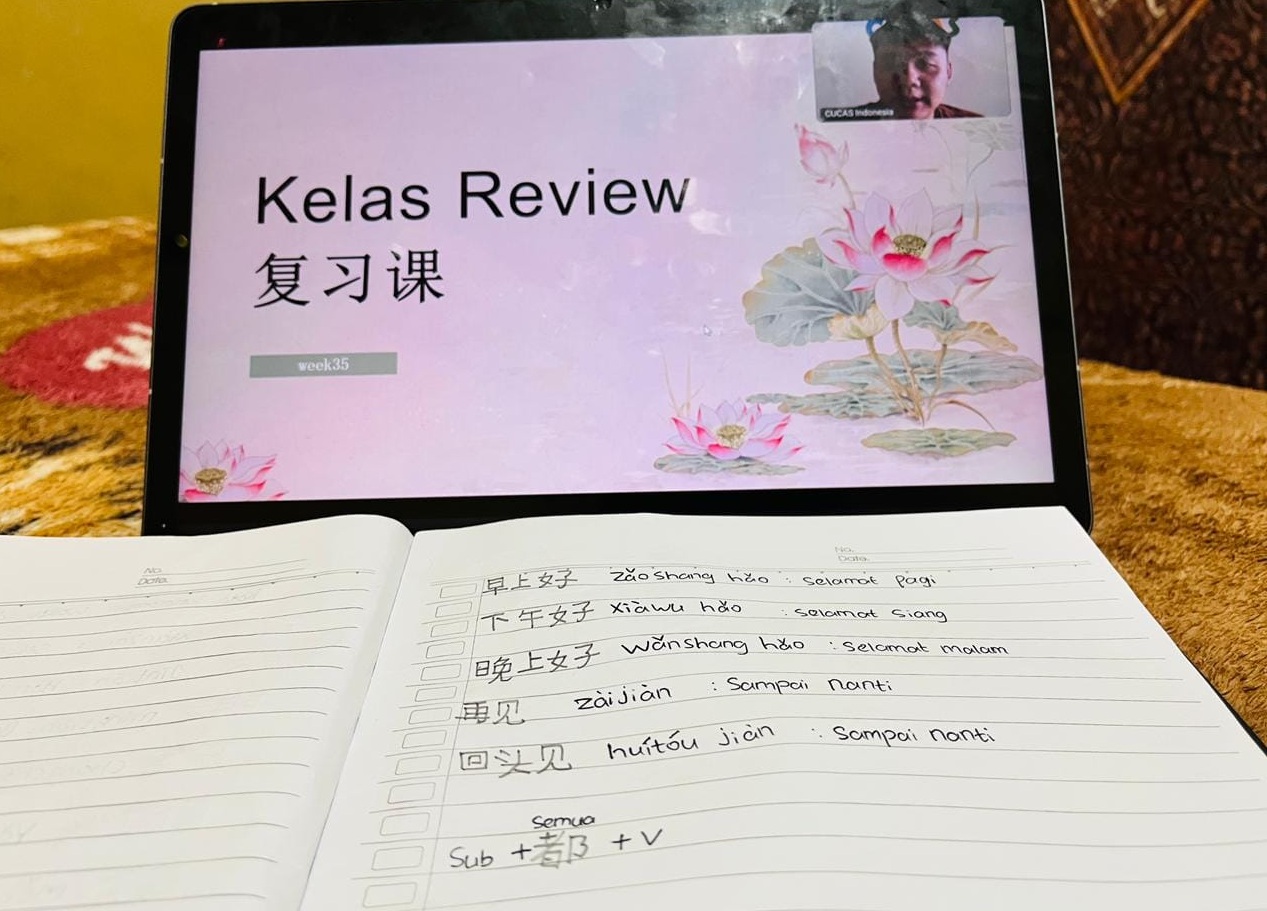 Kelas Review
复习课
week35
CUCAS Indonesia
No.
Date.
No.
Date.
早上好 zǎoshang hǎo : selamat pagi
下午好 xiàwu hǎo : selamat siang
晚上好 wǎnshang hǎo : selamat malam
再见 zàijiàn : Sampai nanti
回头见 huítóu jiàn : Sampai nanti
semua
Sub + 都 + V